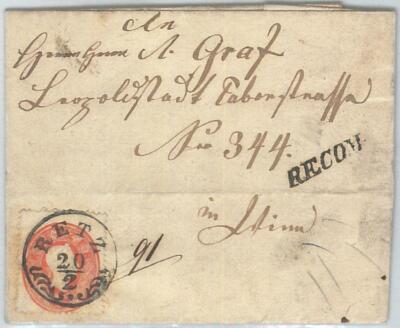 An
Herrn Herrn A. Graf
Leopoldstadt Taborstrasse
Nro 344.
RECOM
in Wien
RETZ
20
2
91